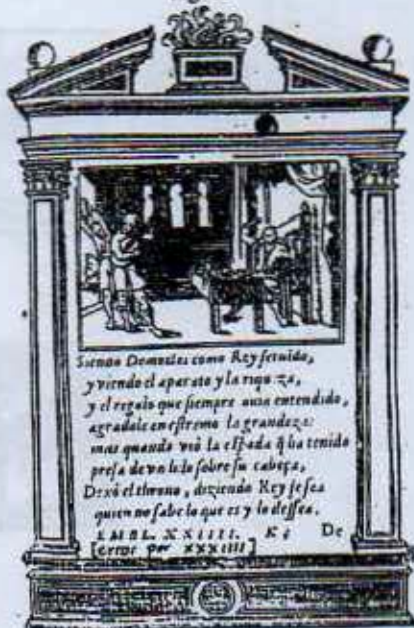 Siendo Damocles como Rey seruido,
y viendo el aparato y la riqueza,
y el regalo que siempre auia entendido,
agradole en estremo la grandeza:
mas quando viò la espada q̃ ha tenido
presa de vn hilo sobre su cabeça,
Dexò el throno, diziendo Rey se sea
quien no sabe lo que es y lo dessea.
EMBL. XXIIII. K i De
[error por XXXIIII]